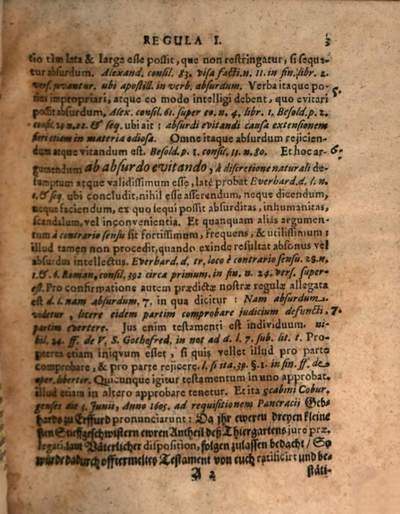 REGULA I. 3
tio tàm lata & larga esse possit, que non restringatur, si seque-
tur absurdum. Alexand. consil. 83. visa facti. n. 11. in fin. libr. 2.
vers. moventur. ubi apostill. in verb. absurdum. Verba itaque po- 5.
nis impropriari, atque eo modo intelligi debent, quo evitari
possit absurdum. Alex. consil. 61. super eo. n. 4. libr. 1. Besold. p. 2.
consil. n. 22. & seq. ubi ait: absurdi evitandi causa extensionem
fieri etiam in materia odiosa. Omne itaque absurdum rejicien-
dum atque vitandum est. Besold. p. 1. consil. 11. n. 80. Et hoc ar- 6.
gumentum ab absurdo evitando, à discretione naturali de-
sumptum atque validissimum esse, latè probat Everhard. d. l. n.
1. & seq. ubi concludit, nihil esse asserendum, neque dicendum,
neque faciendum, ex quo sequi possit absurditas, inhumanitas,
scandalum, vel inconvenientia. Et quanquam aliàs argumen-
tum à contrario sensu sit fortissimum, frequens, & utilissimum:
illud tamen non procedit, quando exinde resultat absonus vel
absurdus intellectus. Everhard. d. tr. loco è contrario sensu. 28. n.
1. & 6. Roman. consil. 392 circa primum. in fin. n. 24. vers. super-
est. Pro confirmatione autem prædictæ nostræ regulæ allegata
est d. l. nam absurdum, 7. in qua dicitur: Nam absurdum
videtur, licere eidem partim comprobare judicium defuncti, 7.
partim evertere. Jus enim testamenti est individuum. ni-
hil. 24. ff. de V. S. Gothofred. in not. ad d. l. 7. sub. lit. t. Pro-
pterea etiam iniquum esset, si quis vellet illud pro parte
comprobare, & pro parte rejicere. l. si ita. 39. §. 1. in fin. ff. de
oper. libertor. Quicunque igitur testamentum in uno approbat,
illud etiam in altero approbare tenetur. Et ita scabini Cobur-
genses die 1. Junii, Anno 1605. ad requisitionem Pancratii Geb-
hards zu Erffurd pronunciarunt: Da ihr eweren dreyen kleine-
sten Suffgeschwistern ewren Antheil deß Thiergartens jure præ-
legati, laut Väterlicher disposition, folgen zulassen bedacht / So
würde dadurch offtermeltes Testament von euch ratificirt und be-
A 2 stäti-